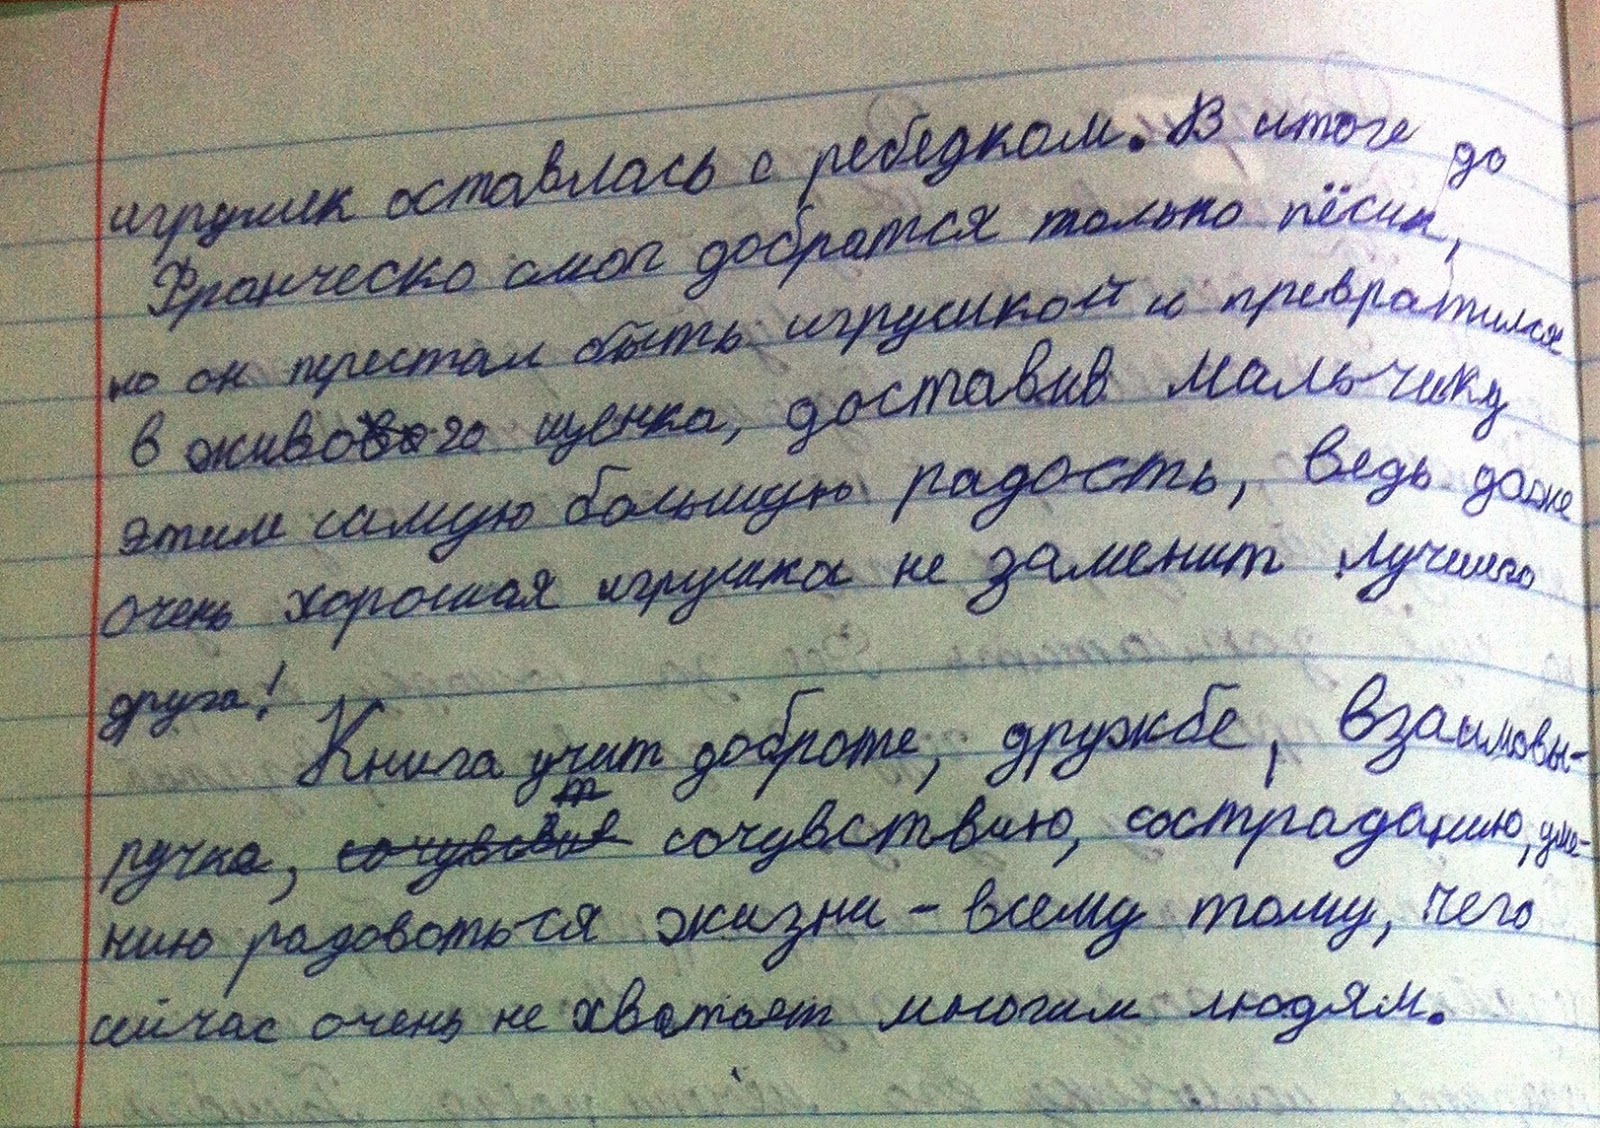 игрушек оставлась с ребёдком. В итоге до
Франческо смог добратся только пёсик,
но он перестал быть игрушкой и превратился
в живого щенка, доставив мальчику
этим самую большую радость, ведь даже
очень хорошая игрушка не заменит лучшего
друга!
Книга учит доброте, дружбе, взаимовы-
ручке, сочувствию, состраданию, уме-
нию радоваться жизни - всему тому, чего
сейчас очень не хватает многим людям.